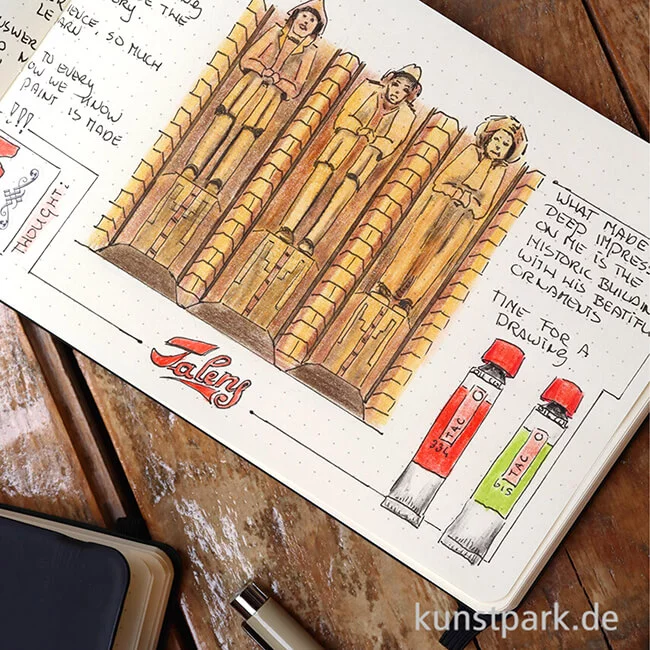 E THE
LE ARN
RIENCE, SO MUCH
TO EVERY
OW WE KNOW
PAINT IS MADE
!!!
THOUGHT:
Talens
WHAT MADE
DEEP IMPRESS
ON ME IS THE
HISTORIC BUILDIN
WITH HIS BEATIFU
ORNAMENTS
TIME FOR A
DRAWING..
TAC
334
TAC
615
kunstpark.de